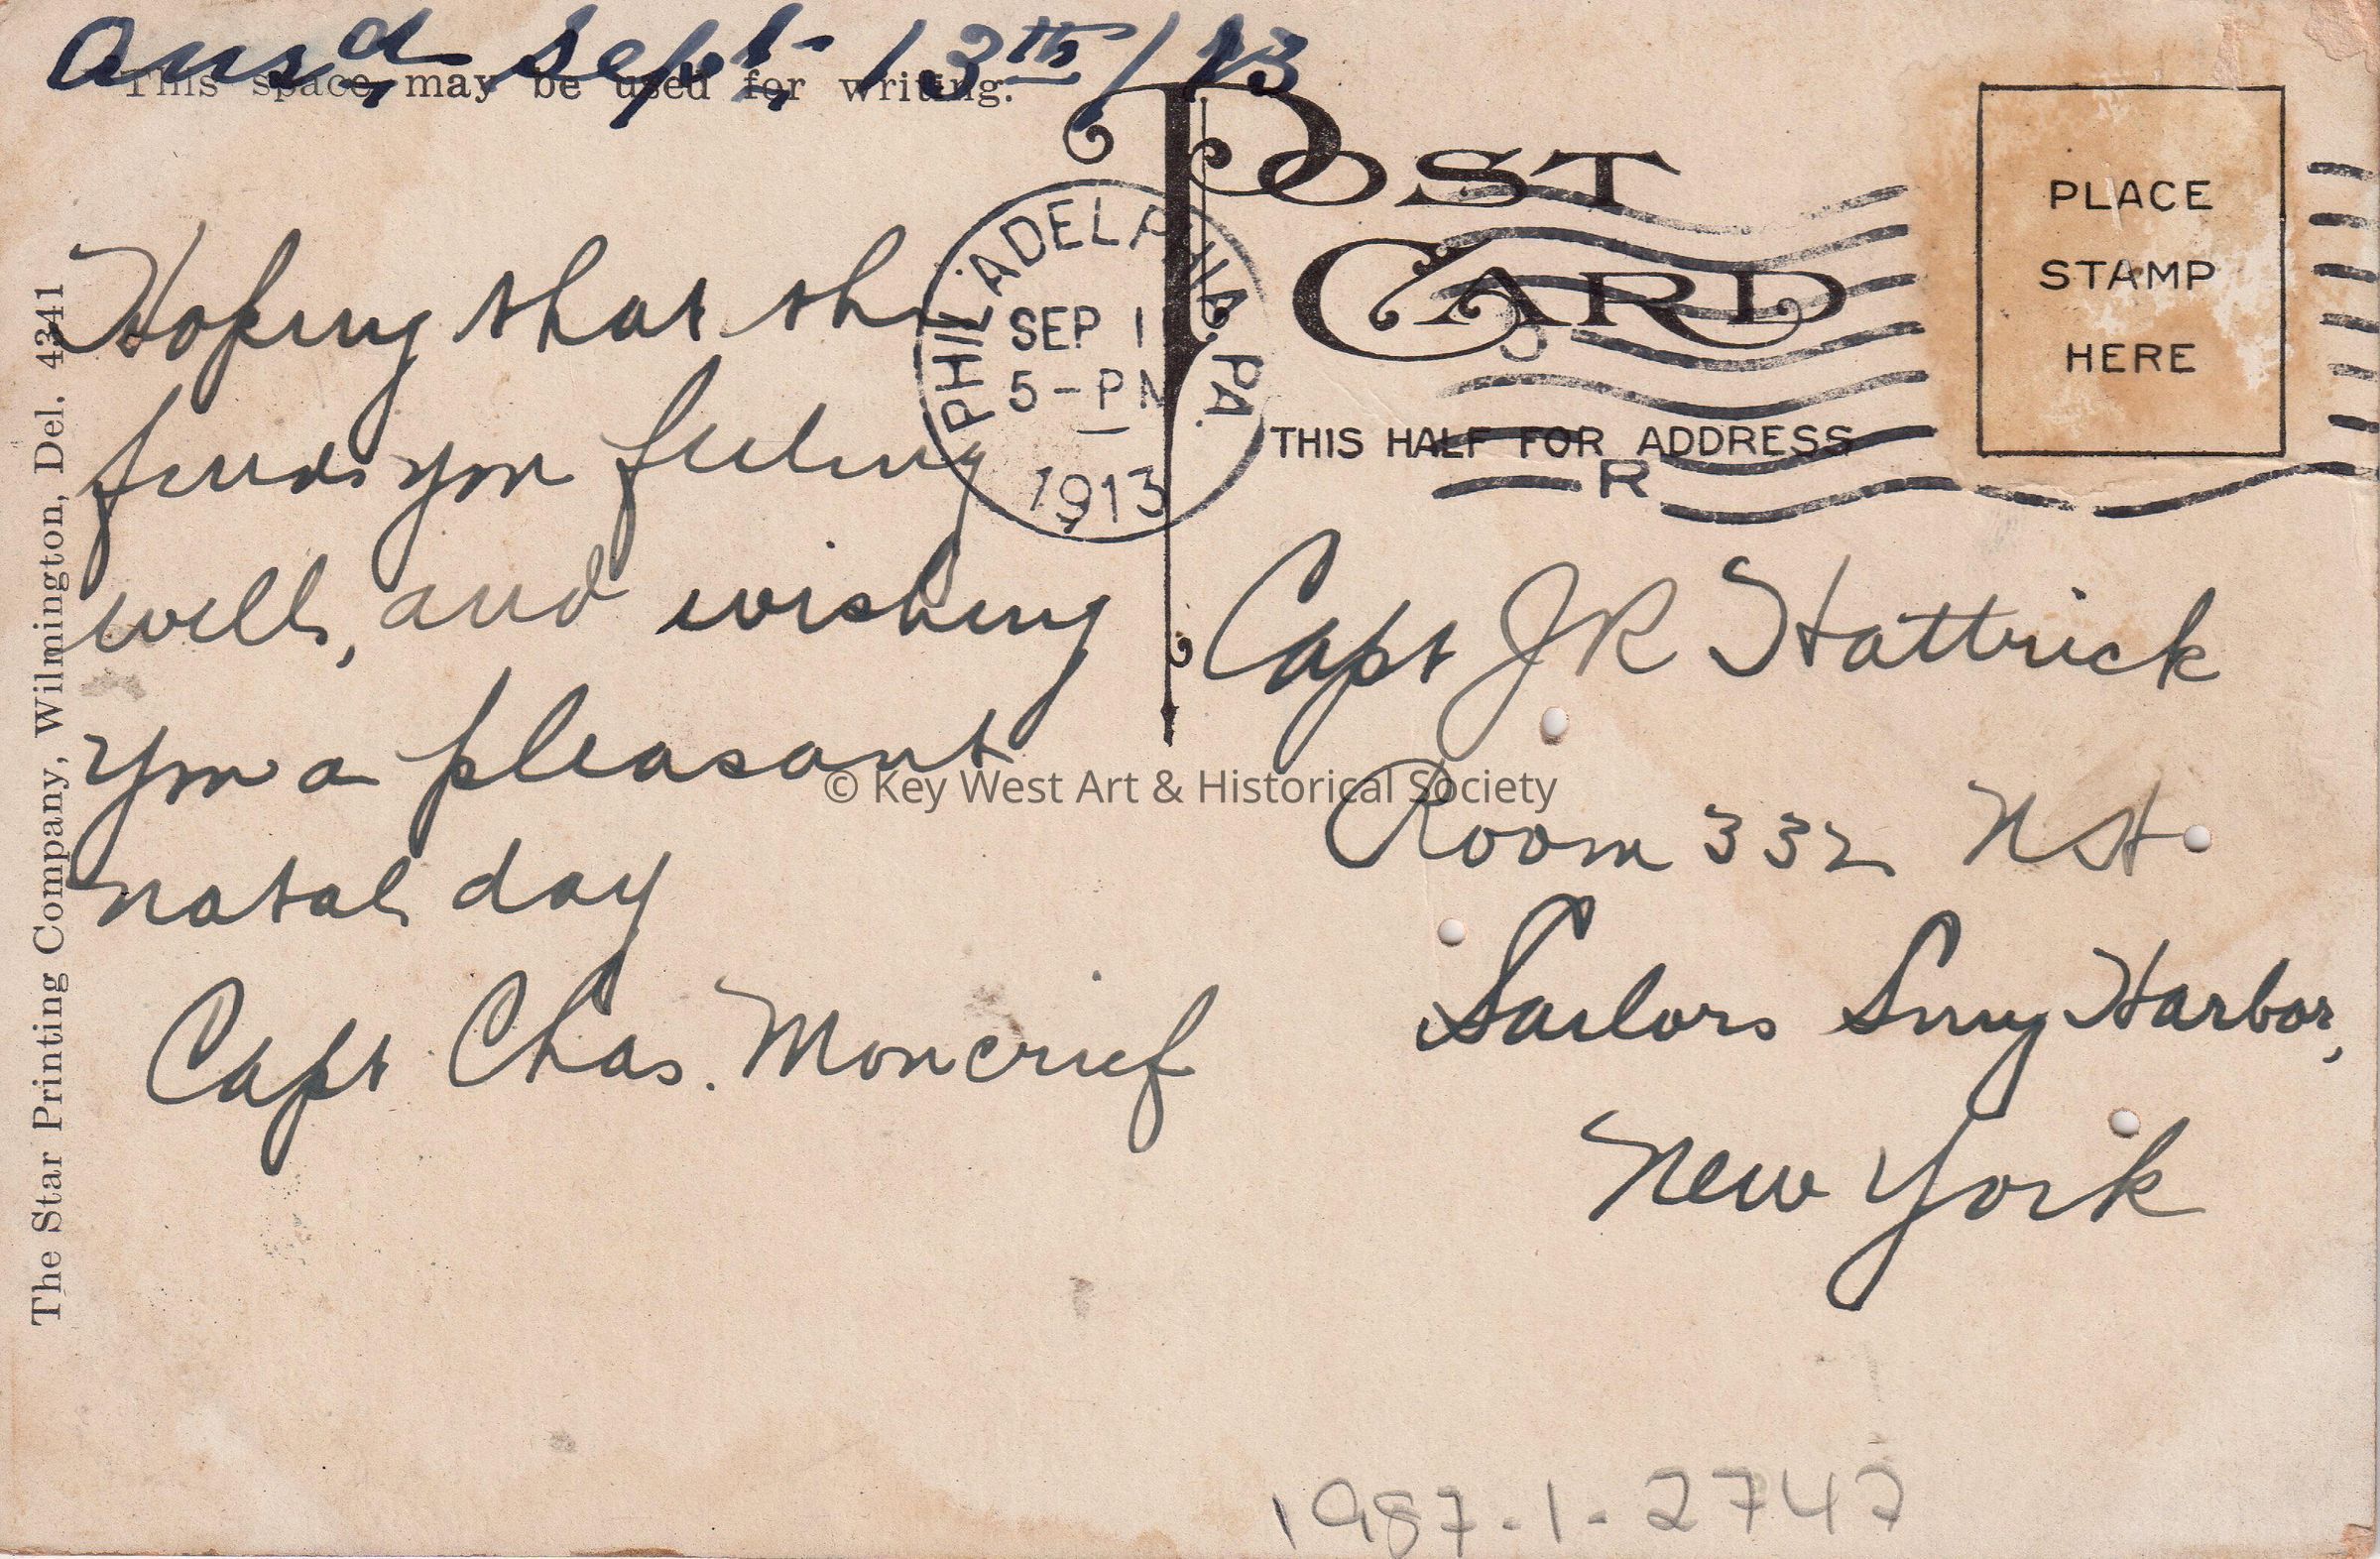 ansd Sept 13th/13
This space may be used for writing.
POST CARD
PLACE
STAMP
HERE
THIS HALF FOR ADDRESS
PHILADELPHIA, PA.
SEP 1
5-PM
1913
R
Hoping that this
finds you feeling
well, and wishing
you a pleasant
natal day
Capt Chas. Moncrief
Capt JR Hattrick
Room 332 N St.
Sailors Snug Harbor,
New York
The Star Printing Company, Wilmington, Del. 4341
© Key West Art & Historical Society
1987.1.2747